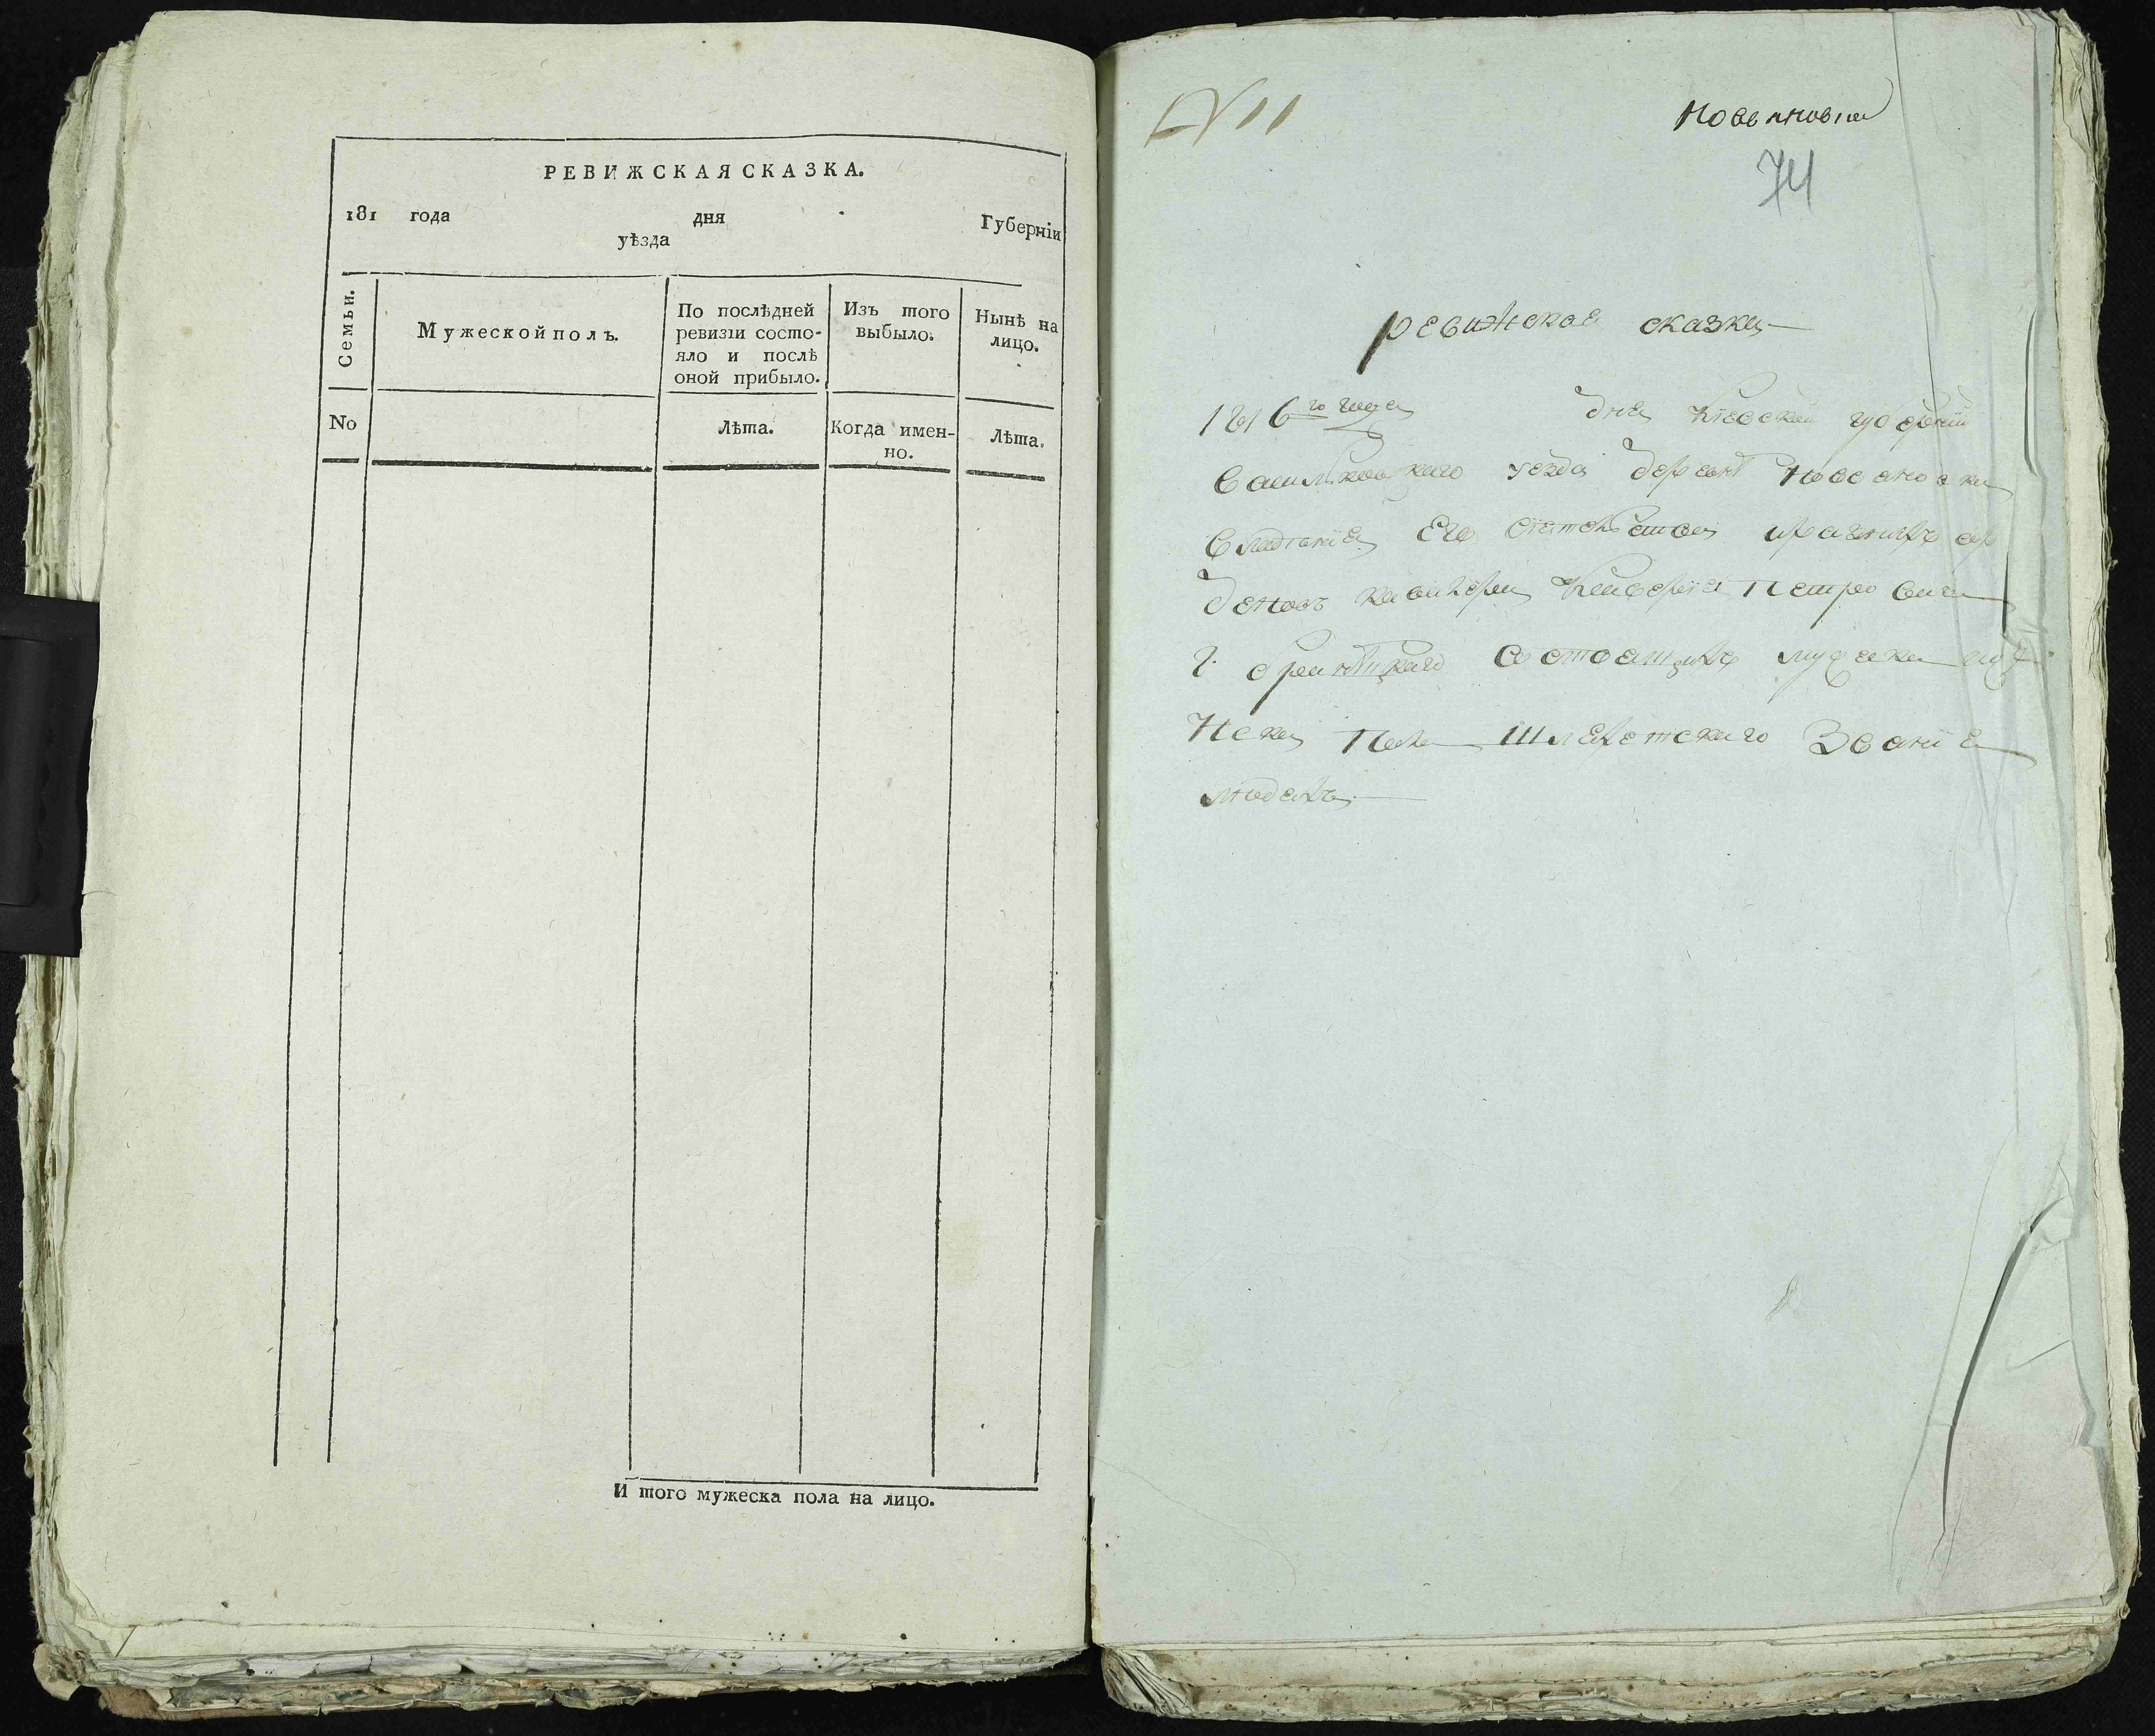 РЕВИЖСКАЯ СКАЗКА.
181 года дня Губерніи
уѣзда
Семьи.
Мужеской полъ.
По послѣдней
ревизіи состо-
яло и послѣ
оной прибыло.
Изъ того
выбыло.
Нынѣ на
лицо.
No
Лѣта.
Когда имен-
но.
Лѣта.
И того мужеска пола на лицо.
N 11
74
ревижская сказка
1816го года дня Кіевской губерніи
Васильковского уезда деревнѣ
владѣнія Его Сіятельства
Петровича
г. Браницкаго состоящихъ мужеска
неска пола Шляхетскаго Званія
людехъ